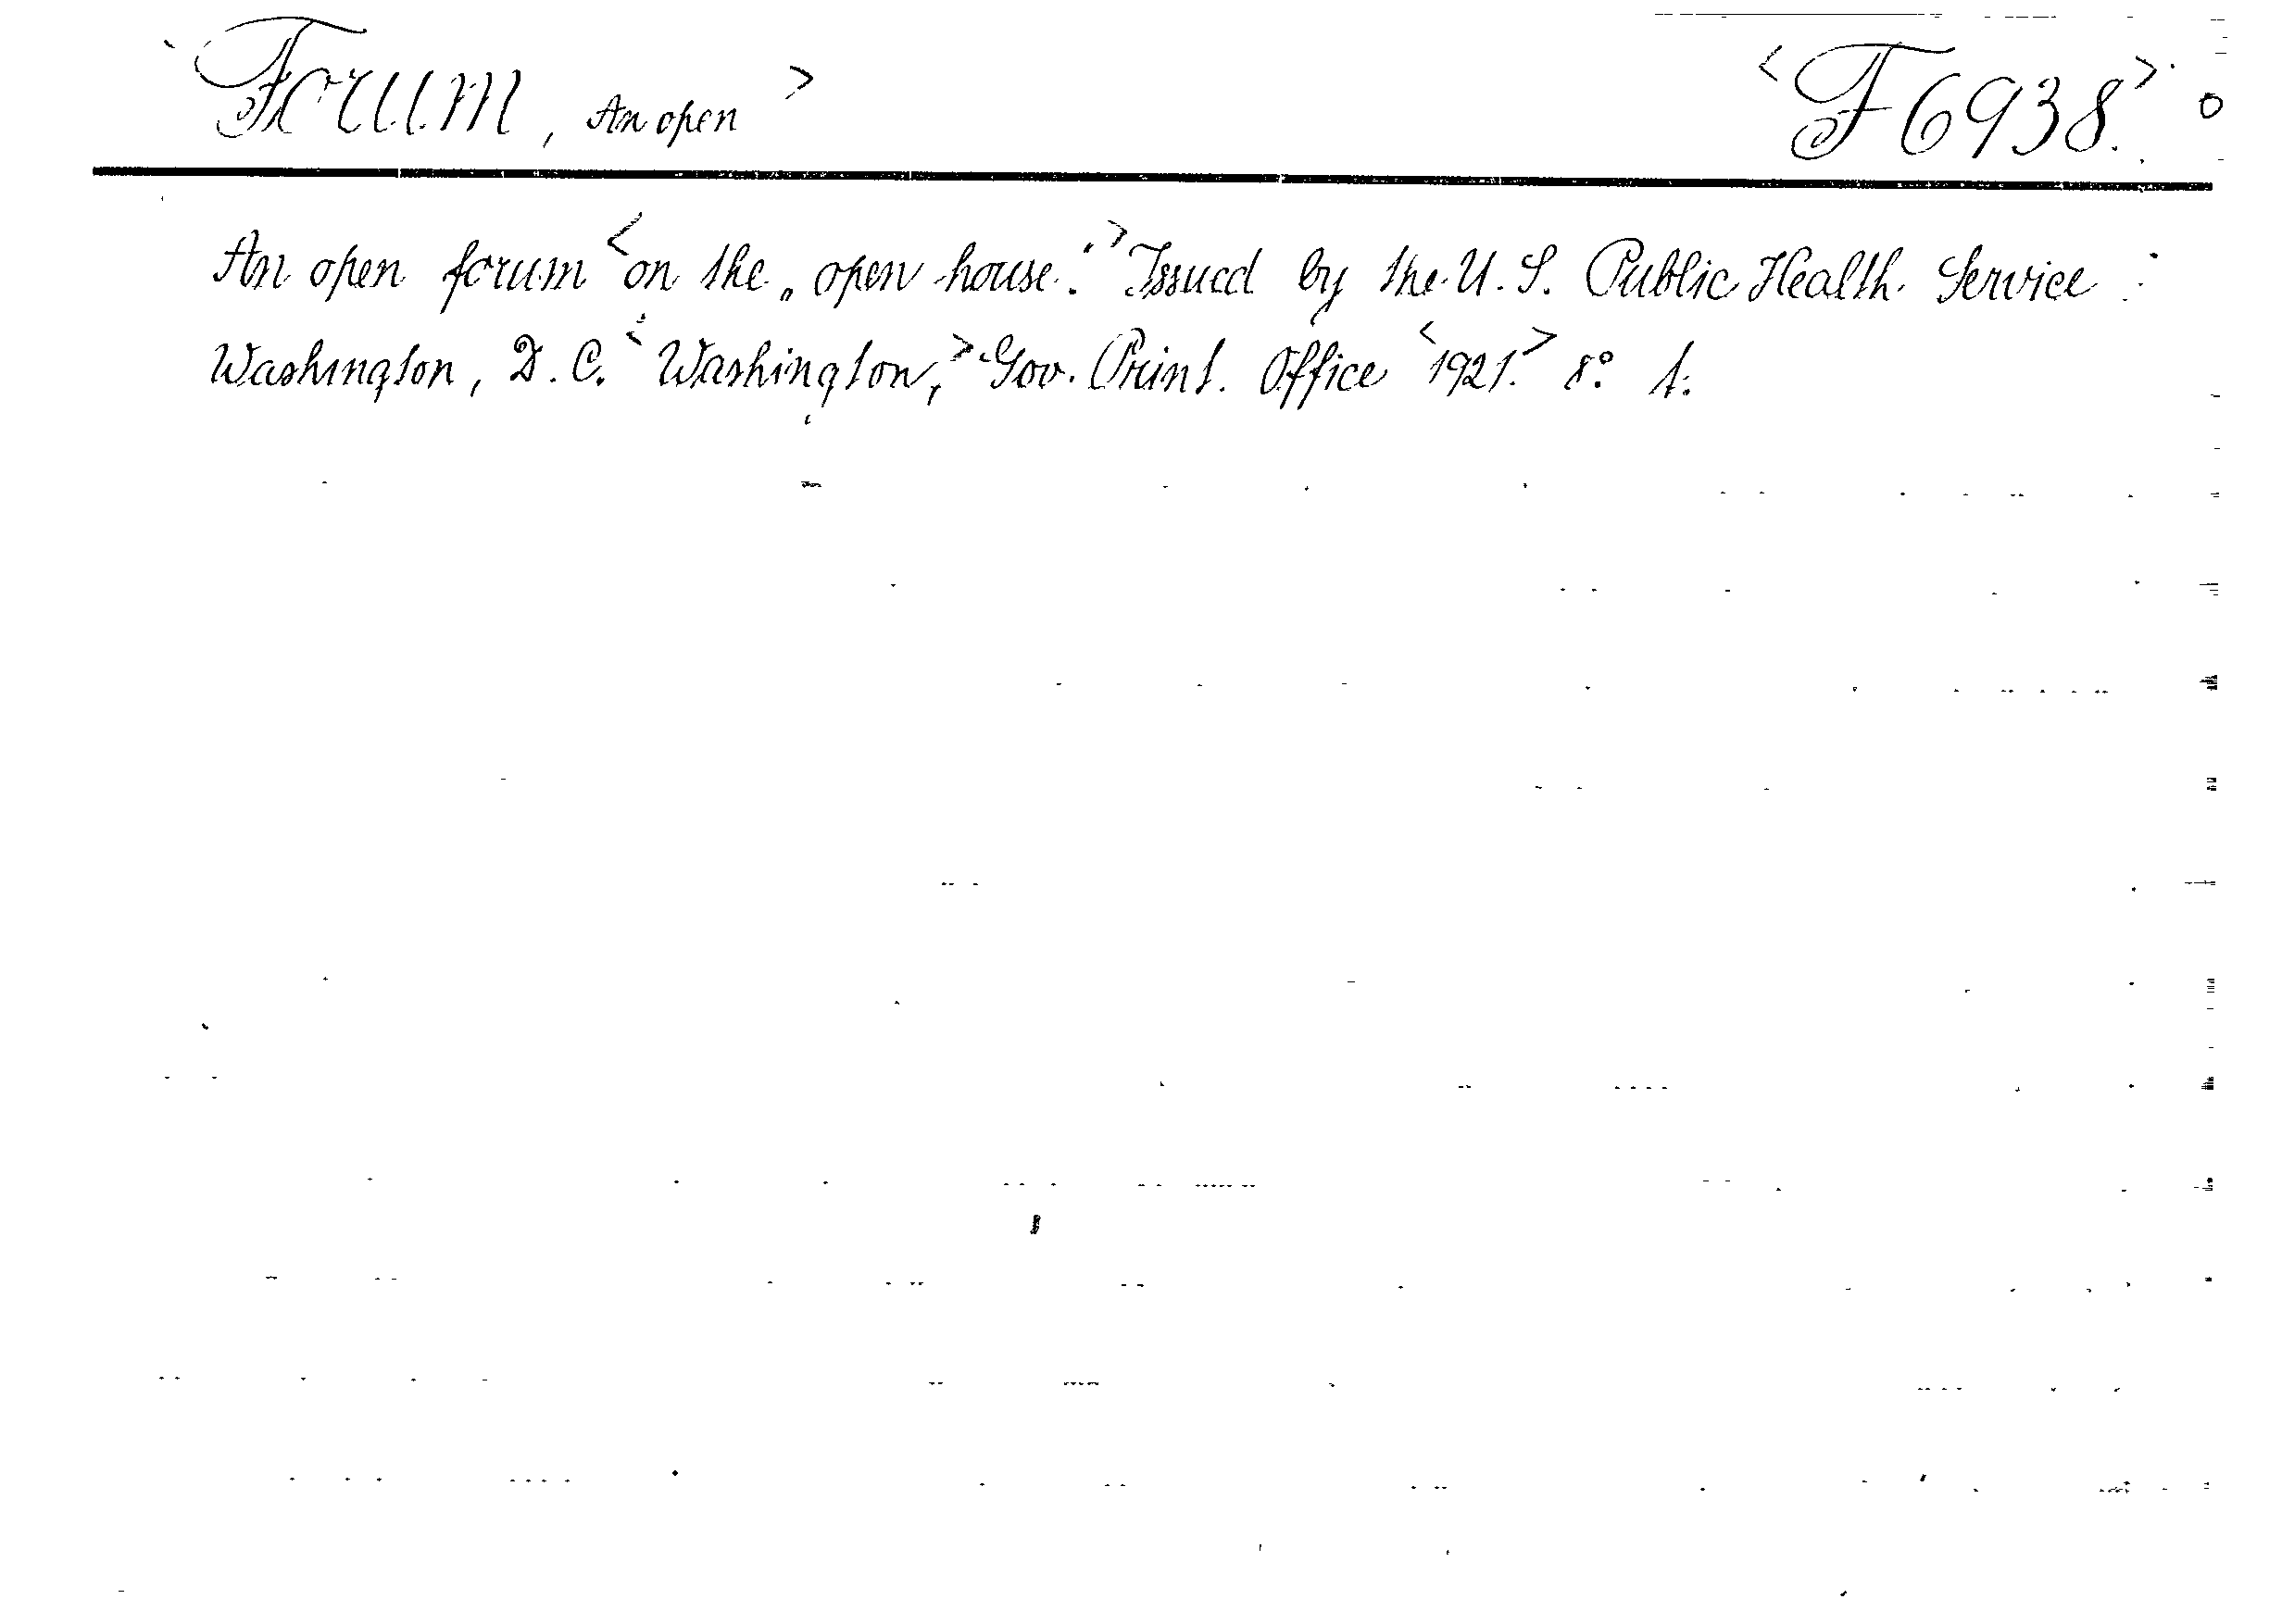 <Forum, An open> <F6938.>
An open forum <on the „open house.“> Issued by the U.S. Public Health Service :
Washington, D.C. <Washington,> Gov. Print. Office <1921.> 8° 1.